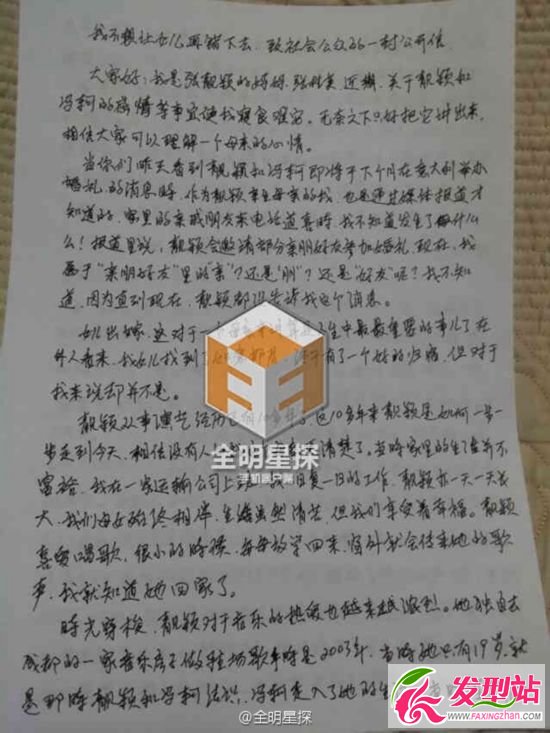 我不想让女儿再错下去, 致社会公众的一封公开信.
大家好, 我是张靓颖的妈妈, 张桂英. 近期, 关于靓颖和
冯柯的婚情等事宜使我寝食难安. 无奈之下只好把它讲出来,
相信大家可以理解一个母亲的心情.
当你们昨天看到靓颖和冯柯即将于下个月在意大利举办
婚礼的消息时, 作为靓颖亲生母亲的我, 也是通过媒体报道才
知道的. 家里的亲戚朋友来电话道喜时, 我不知道发生了什么
么! 报道里说, 靓颖会邀请部分亲朋好友参加婚礼. 现在, 我
属于“亲朋好友”里的“亲”? 还是“朋”? 还是“好友”呢? 我不知
道, 因为直到现在, 靓颖都没告诉我这个消息.
女儿出嫁, 这对于一个母亲 生中最最重要的事儿了. 在
外人看来, 我女儿找到了 有了一个好的归宿, 但对于
我来说却并不是.
靓颖从事演艺经历已有10多年了. 这10多年来靓颖是如何一步
步走到今天, 相信没有人 清楚了. 当时家里的生活并不
富裕. 我在一家运输公司上 日复一日的工作, 靓颖亦一天一天长
大. 我们母女始终相伴, 生活虽然清苦, 但我们享受着幸福. 靓颖
喜爱唱歌, 很小的时候, 每每放学回来, 窗外就会传来她的歌
声, 我就知道她回家了.
时光穿梭, 靓颖对于音乐的热爱也越来越浓烈. 她独自去
成都的一家音乐房子做驻场歌手时是2003年, 当时她只有19岁, 就
是那时靓颖和冯柯结识, 冯柯走入了她的生
全明星探
手机客户端
@全明星探
发型站
www.FAXINGZHAN.COM